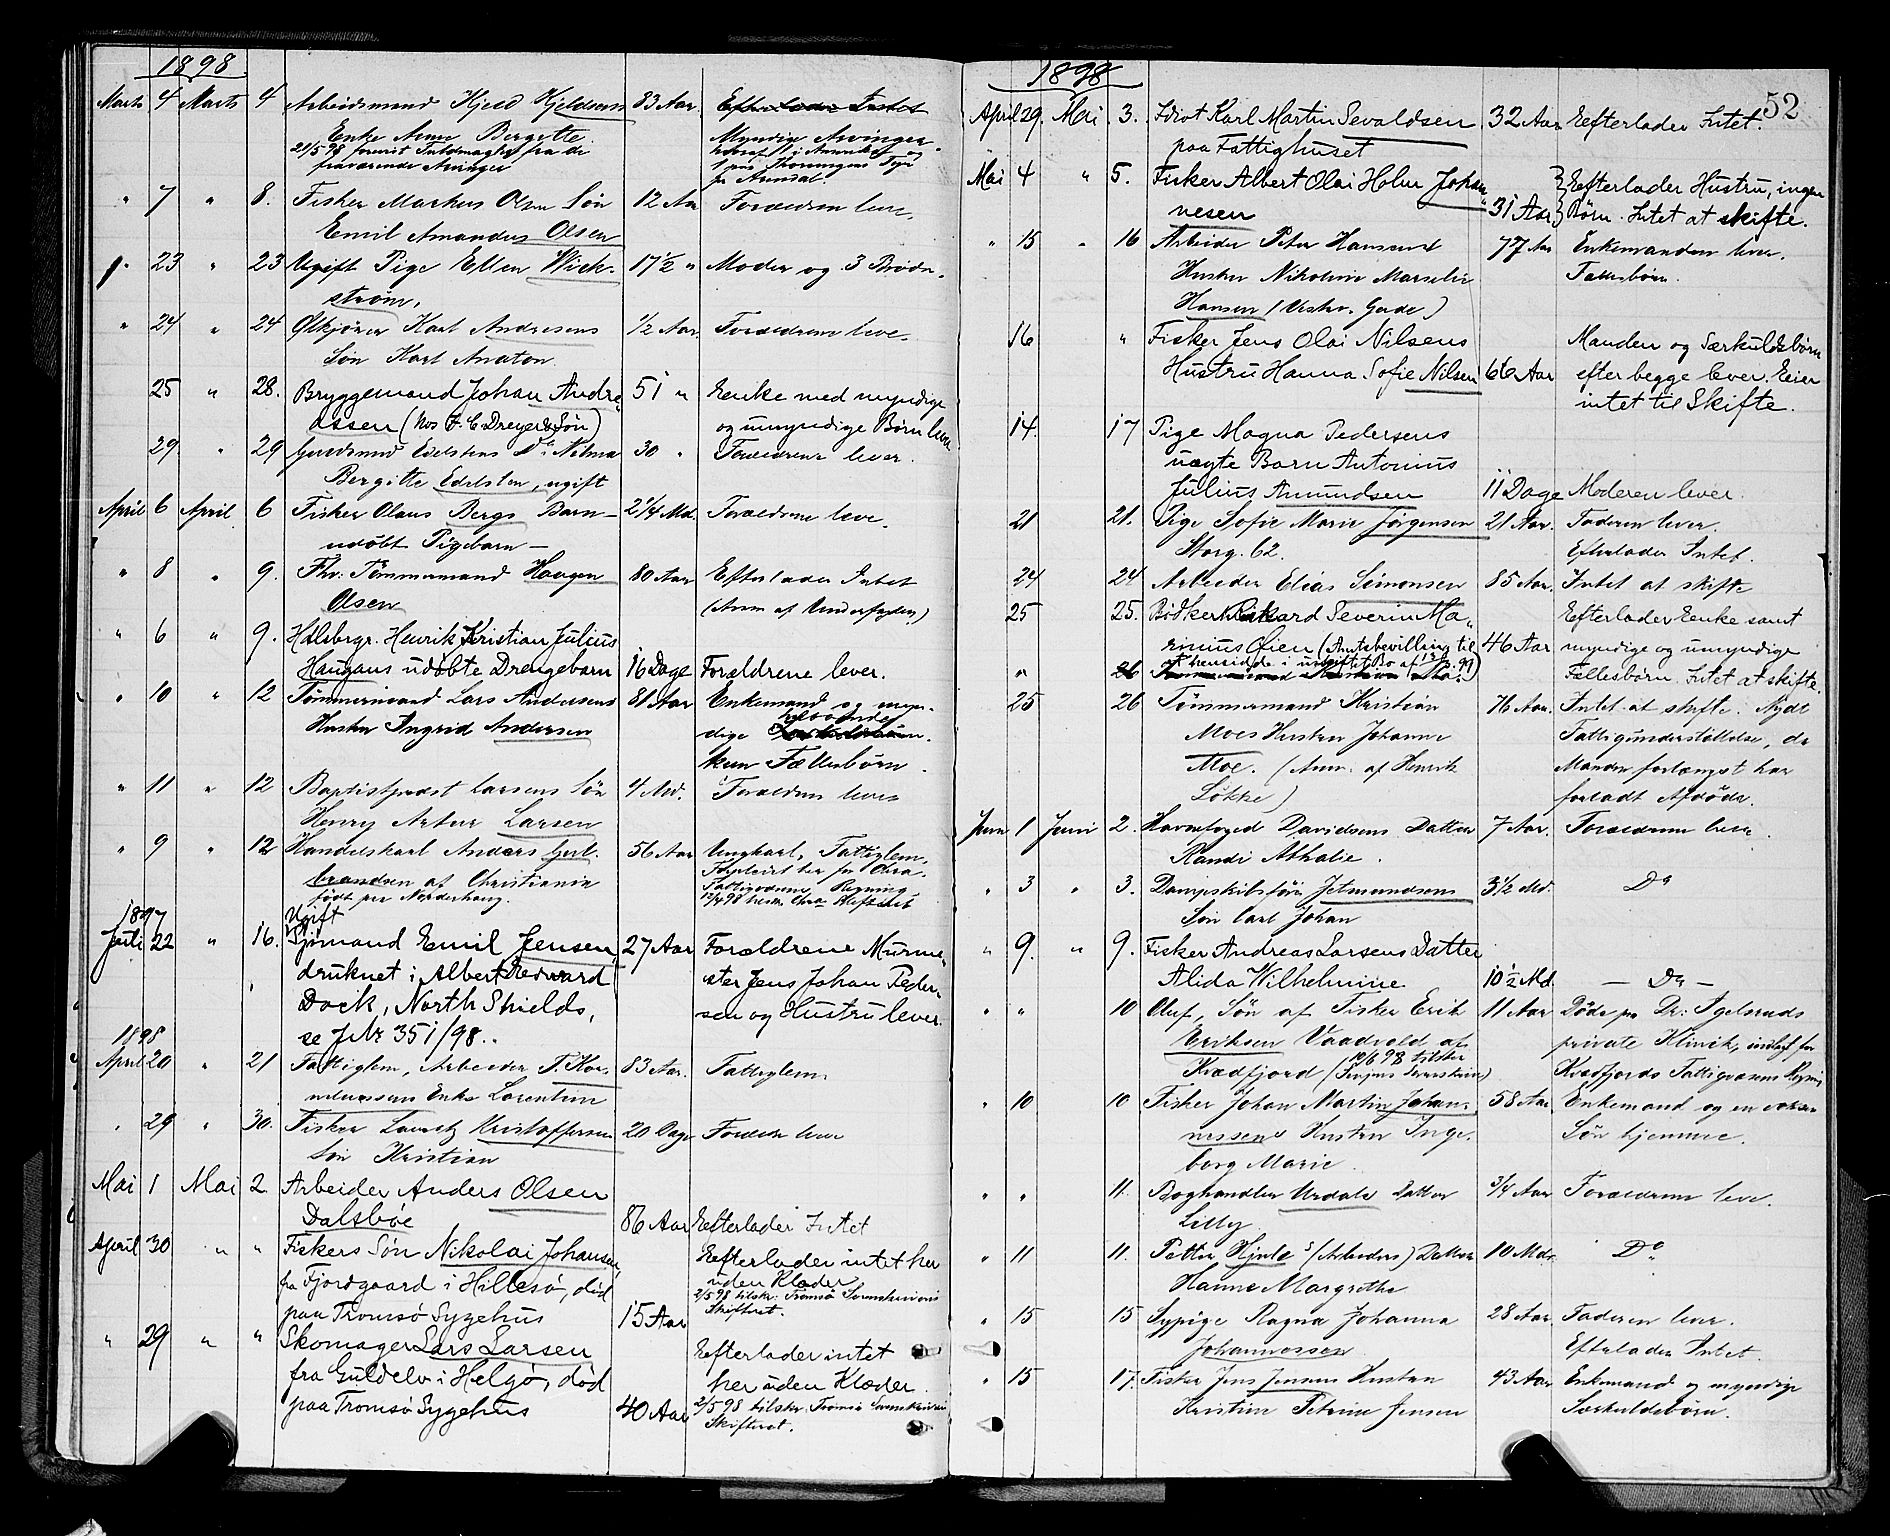 1898
Marts 4 Marts 4 Arbeidsmand Kjeld Kjeldsens 83 Aar. Efterlader Intet
Enke Anne Bergitte Myndige Arvinger
21/5 98 forevist Fuldmagter fra de
fraværende Arvinger
fr Arendal.
" 7 " 8. Fisker Markus Olsen Søn 12 Aar Forældrene leve.
Emil Amandus Olsen
" 23 " 23 Ugift Pige Ellen Wick- 17 1/2 " Moder og 3 Brødre.
strøm.
" 24 " 24 Ølkjører Karl Andresens 1/2 Aar. Forældrene leve.
Søn Karl Anaton.
25 " 28. Bryggemand Johan Andre- 51 " Eenke med myndige
assen (hos J. C. Dreyer & Søn) og umyndige Børn lever
29 " 29 Edelstens Dr. Nilma 30 " Forældrene lever.
Bergitte Edelsten, ugift
April 6 April 6 Fisker Olaus Bergs Barn - 2 1/4 Md. Forældrene leve.
udøbt Pigebarn -
" 8 " 9. Fhv. Tømmermand Haagen 80 Aar Efterlader Intet
Olsen (Anm af Underfogden)
" 6 " 9. Hdlsbrgr. Henrik Kristian Julius
Haugans udøbte Drengebarn 16 Dage Forældrene lever.
" 10 " 12 Tømmermand Lars Andersens 81 Aar Enkemand og myn-
Hustru Ingrid Andersen dige
kun Fællesbørn.
" 11 " 12 Baptistpræst Larsens Søn 4 Md. Forældrene lever
Henry Artur Larsen
" 9 " 12 Handelskarl Anders Gul- 56 Aar Ungkarl, Fattiglem.
brandsen af Christiania Forpleiet her for Chra.
født paa Norderhoug. Fattigvæsens Regning.
12/4 98 tilskr. Chra Skifteret
1897 Ugift
Juli 22 " 16. Sjømand Emil Jensen, 27 Aar Forældrene Murme-
druknet i Albert Edward ster Jens Johan Peder-
Dock, North Shields, sen og Hustru lever.
se J.No 351/98.
1898
April 20 " 21 Fattiglem, Arbeider T. Kor- 83 Aar. Fattiglem
neliussens Enke Lorentine
" 29 " 30. Fisker Lauritz Kristoffersen 20 Dage Forældre leve
Søn Kristian
Mai 1 Mai 2 Arbeider Anders Olsen
Dalsbøe 86 Aar Eefterlader Intet
April 30 " " Fiskers Søn Nikolai Johansen, Eefterlader intet her
fra Fjordgaard i Hillesø, død uden Klæder
paa Tromsø Sygehus 15 Aar 2/5 98 tilskr. Tromsø Sorenskriveris
Skifteret.
" 29 " " Skomager Lars Larsen Eefterlader intet
fra Guldelv i Helgø, død her uden Klæder.
paa Tromsø Sygehus 40 Aar 2/5 98 tilskr. Tromsø Sorenskriveri
Skifteret.
1898
52
April 29. Mai 3. Idiot Karl Martin Sevaldsen 32 Aar Eefterlader Intet.
paa Fattighuset
Mai 4 " 5. Fisker Albert Olai Holm Johan- Eefterlader Hustru, ingen
nesen 31 Aar. Børn. Intet at skifte.
" 15 " 16 Arbeider Peter Hansens 77 Aar Enkemanden lever.
Hustru Nikoline Marselie Fællesbørn.
Hansen (Vestre. Gade)
16 " Fisker Jens Olai Nilsens Manden og Særkuldsbørn
Hustru Hanna Sofie Nilsen 66 Aar efter begge lever. Eeier
intet til Skifte.
14. 17 Pige Magna Pedersens
uægte Barn Antonius
Julius Amundsen 11 Dage Moderen lever.
21 21. Pige Sofie Marie Jørgensen 21 Aar. Faderen lever.
Storg. 62. Efterlader Intet.
24 24 Arbeider Elias Simonsen 85 Aar. Intet at skifte
25 25. Bødker Rikard Severin Ma- Eefterlader Eenke samt
rinius Øien (Amtsbevilling til 46 Aar myndige og umyndige
at hensidde i uskiftet Bo af Fællesbørn. Intet at skifte.
" 26
25 26 Tømmermand Kristian 76 Aar. Intet at skifte. Nydt
Moes Hustru Johanne Fattigunderstøttelse, da
Moe. (Anm. af Henrik Manden forlængst har
Løkke) forladt Afdøde.
Juni 1 Juni 2. Havnefoged Davidsens Datter 7 Aar. Forældrene leve.
Randi Athalie.
" 3 " 3. Dampskibsfører Jetmundsens 3 1/2 Md. Do
Søn Carl Johan
" 9. " 9. Fisker Andreas Larsens Datter
Alida Wilhelmine 10 1/2 Md. - Do -
" " 10 Oluf, Søn af Fisker Erik 11 Aar Døde paa Dr: Igelsruds
Eriksen Vaadvold af private Klinik, indlagt for
Kvædfjord (10/6 98 tilskr Senjens Sorenskriver) Kvædfjords Fattigvæsens Regning
" 10 10 Fisker Johan Martin Johan- 58 Aar Enkemand og en voksen
nessens Hustru Inge- Søn hjemme.
borg Marie.
" " 11. Boghandler Urdals Datter 3/4 Aar Forældrene leve.
Lilly
" 11 11. Petter Hjuls (Arbeiders) Datter 10 Mdr. Do
Hanne Margrethe
" 15 15 Sypige Ragna Johanna 28 Aar. Faderen lever.
Johannessen. Efterlader Intet.
" 15 17. Fisker Jens Jensens Hustru 43 Aar Enkemand og myndige
Kristine Petrine Jensen Særkuldsbørn.